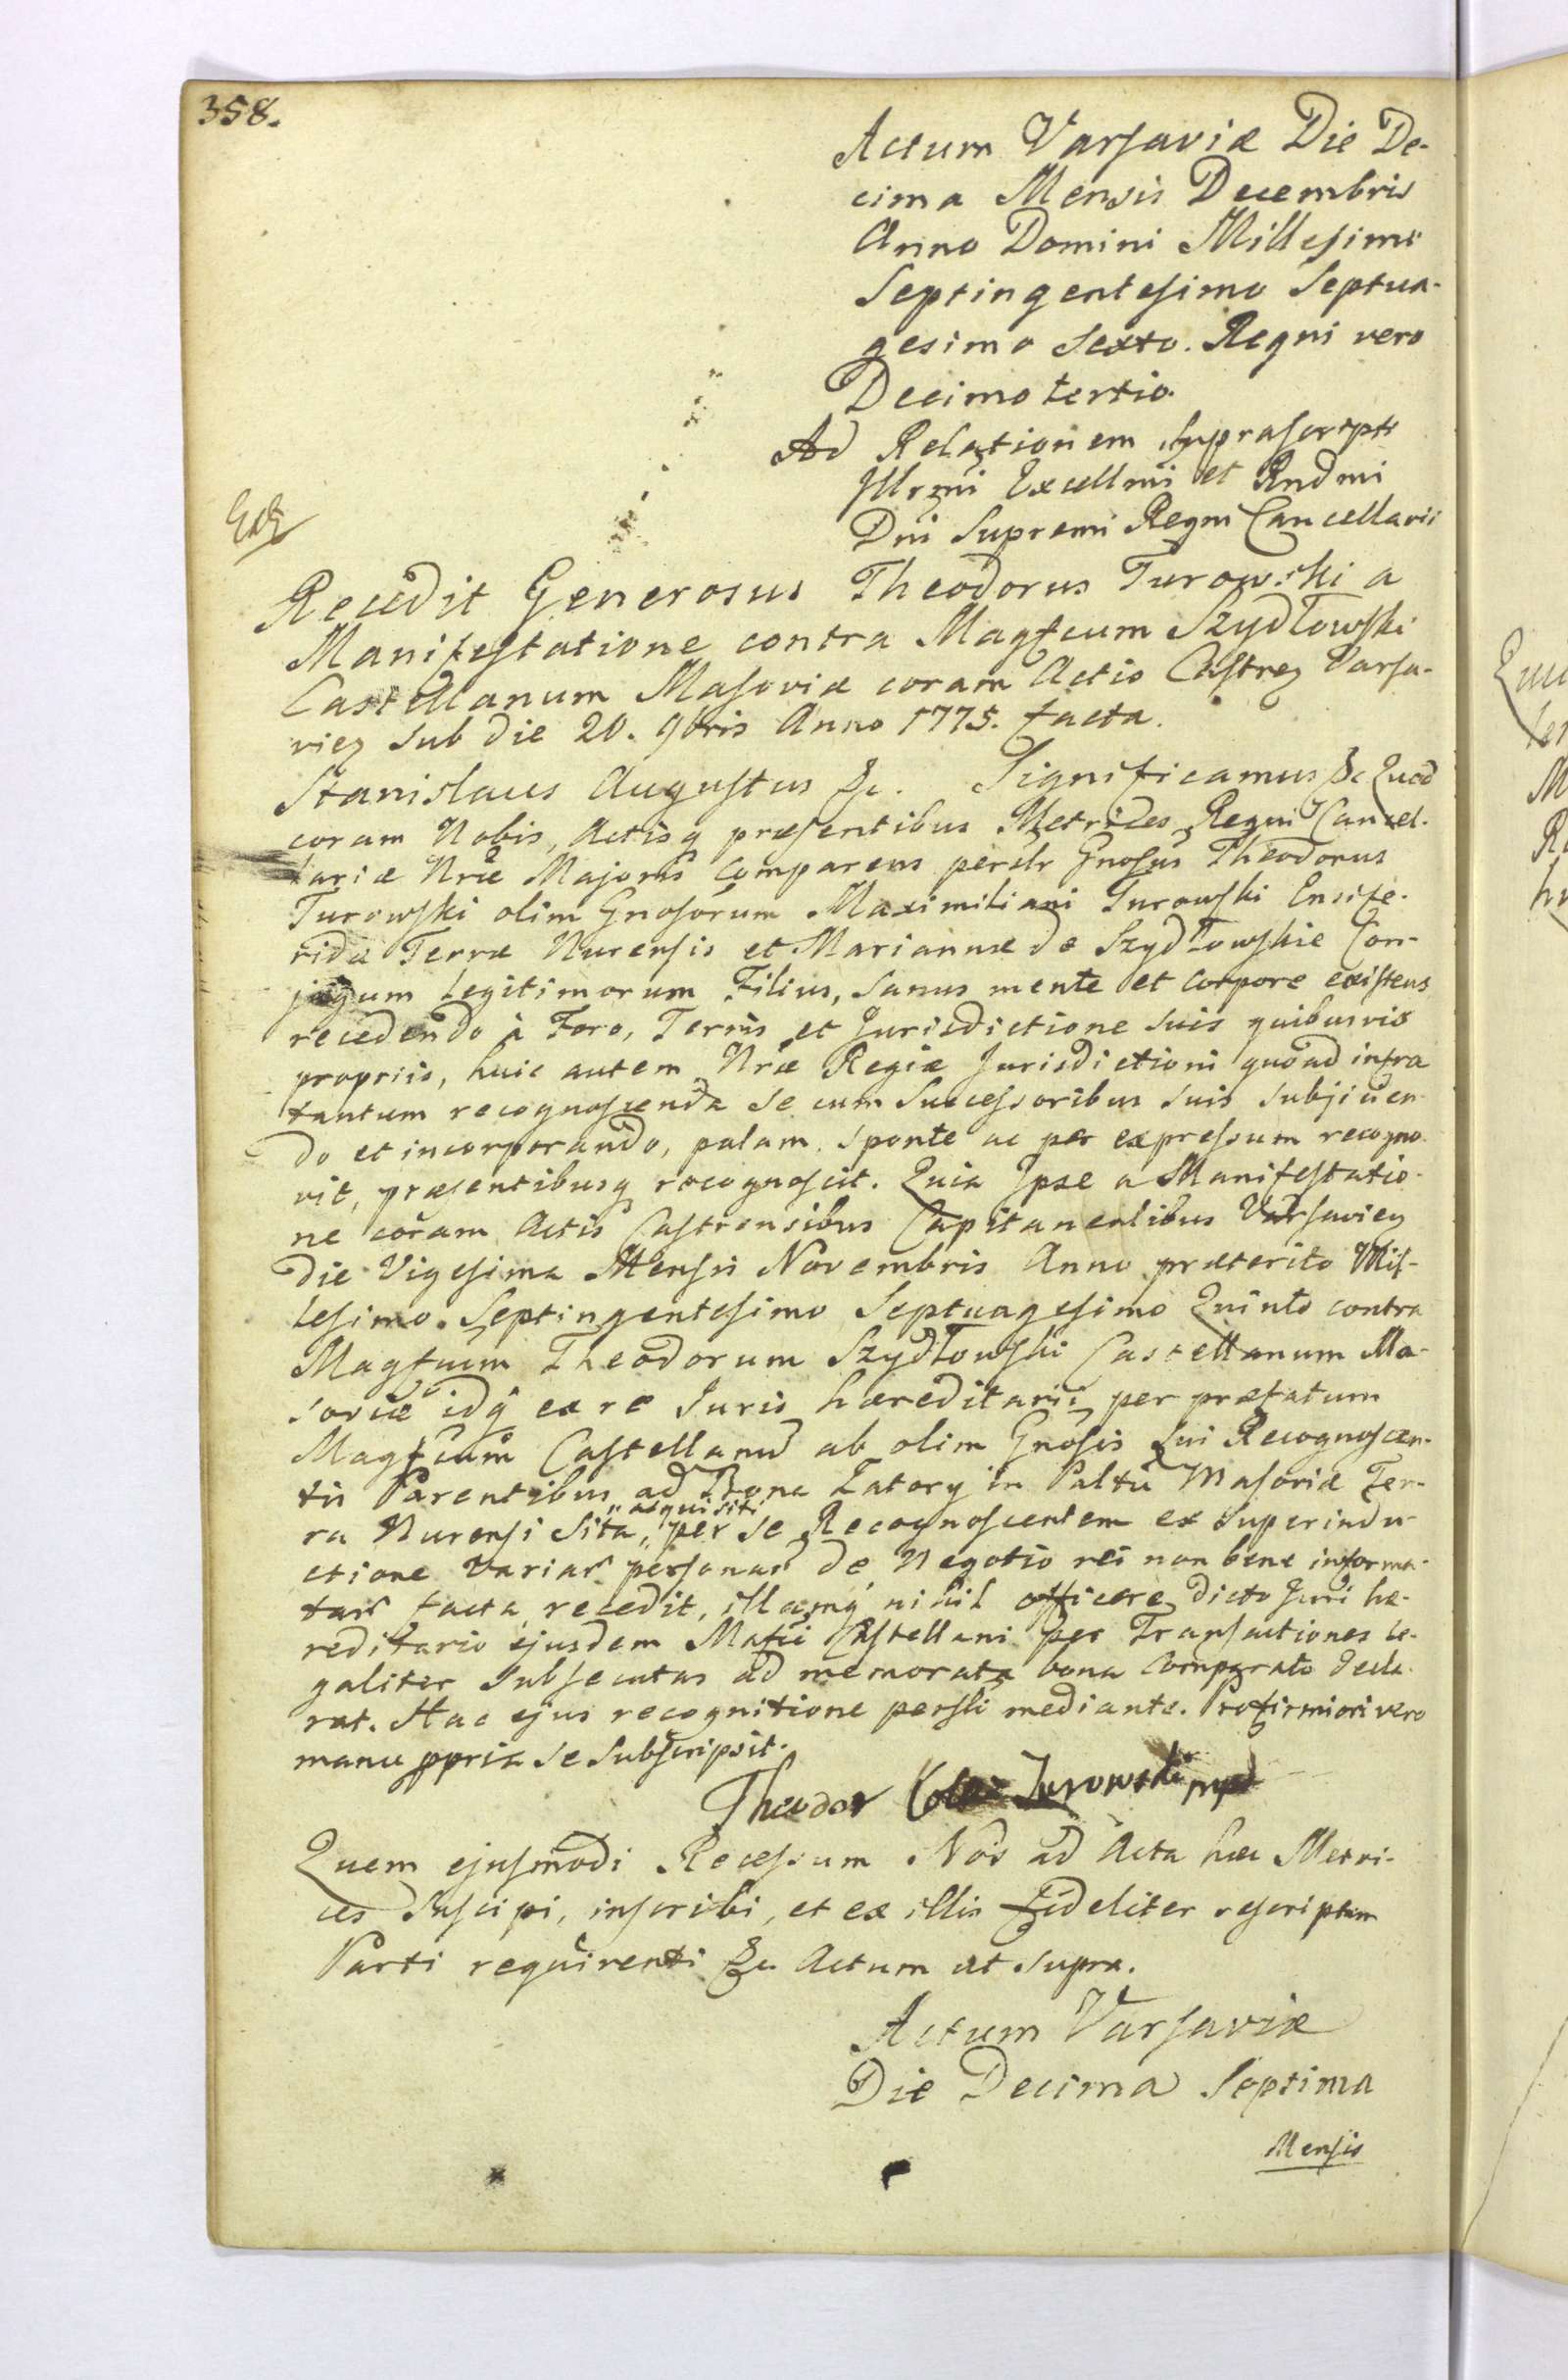 358.
Actum Varsaviæ Die De-
cima Mensis Decembris
Anno Domini Millesimo
Septingentesimo Septua-
gesimo Sexto. Regni vero
Decimo tertio.
Ad Relationem suprascripti
Illrmi Excellmi et Rndmi
Dni Supremi Regni Cancellarii
Recedit Generosus Theodorus Turowski a
Manifestatione contra Magfcum Szydłowski
Castellanum Masoviæ coram Actis Castrez Varsa-
viez sub die 20. 9bris Anno 1775. facta.
Stanislaus Augustus &c. Significamus &c Quod
coram Nobis, Actisq præsentibus Metrices Regni Cancel-
lariæ Nræ Majoris comparens persltr Gnosus Theodorus
Turowski olim Gnosorum Maximiliani Turowski Ensife-
ridæ Terræ Nurensis et Mariannæ de Szydłowskie Con-
jugum Legitimorum Filius, sanus mente et corpore existens
recedendo à Foro, Terris et Jurisdictione suis quibusvis
propriis, huic autem Nræ Regiæ Jurisdictioni quoad infra
tantum recognoscenda se cum Successoribus suis subjicien-
do et incorporando, palam sponte ac per expressum recogno-
vit, præsentibusq recognoscit. Quia Ipse a Manifestatio-
ne coram Actis Castrensibus Capitanealibus Varsaviez
die Vigesima Mensis Novembris Anno præterito Mil-
lesimo Septingentesimo Septuagesimo Quinto contra
Magfcum Theodorum Szydłowski Castellanum Ma-
soviæ idq ex re Juris hæreditarii per præfatum
Magfcum Castellanū ab olim Gnosis sui Recognoscen-
tis Parentibus ad Bona Zatory in Paltū Masoviæ Ter-
ra Nurensi sita, "acquisiti" per se Recognoscentem ex superindu-
ctione variar personar de Negotio rei non bene informa-
tar facta recedit, illamq nihil officere dicto Juri hæ-
reditario ejusdem Mafci Castellani per Transactiones le-
galiter subsecutas ad memorata bona comparato decla-
rat. Hac ejus recognitione persli mediante. Pro firmiori vero
manu ppria se subscripsit.
Theodor Turowski mp
Quem ejusmodi Recessum Nos ad Acta hæc Metri-
ces suscipi, inscribi, et ex illis fideliter rescriptum
Parti requirenti &c Actum ut supra.
Actum Varsaviæ
Die Decima Septima
Mensis